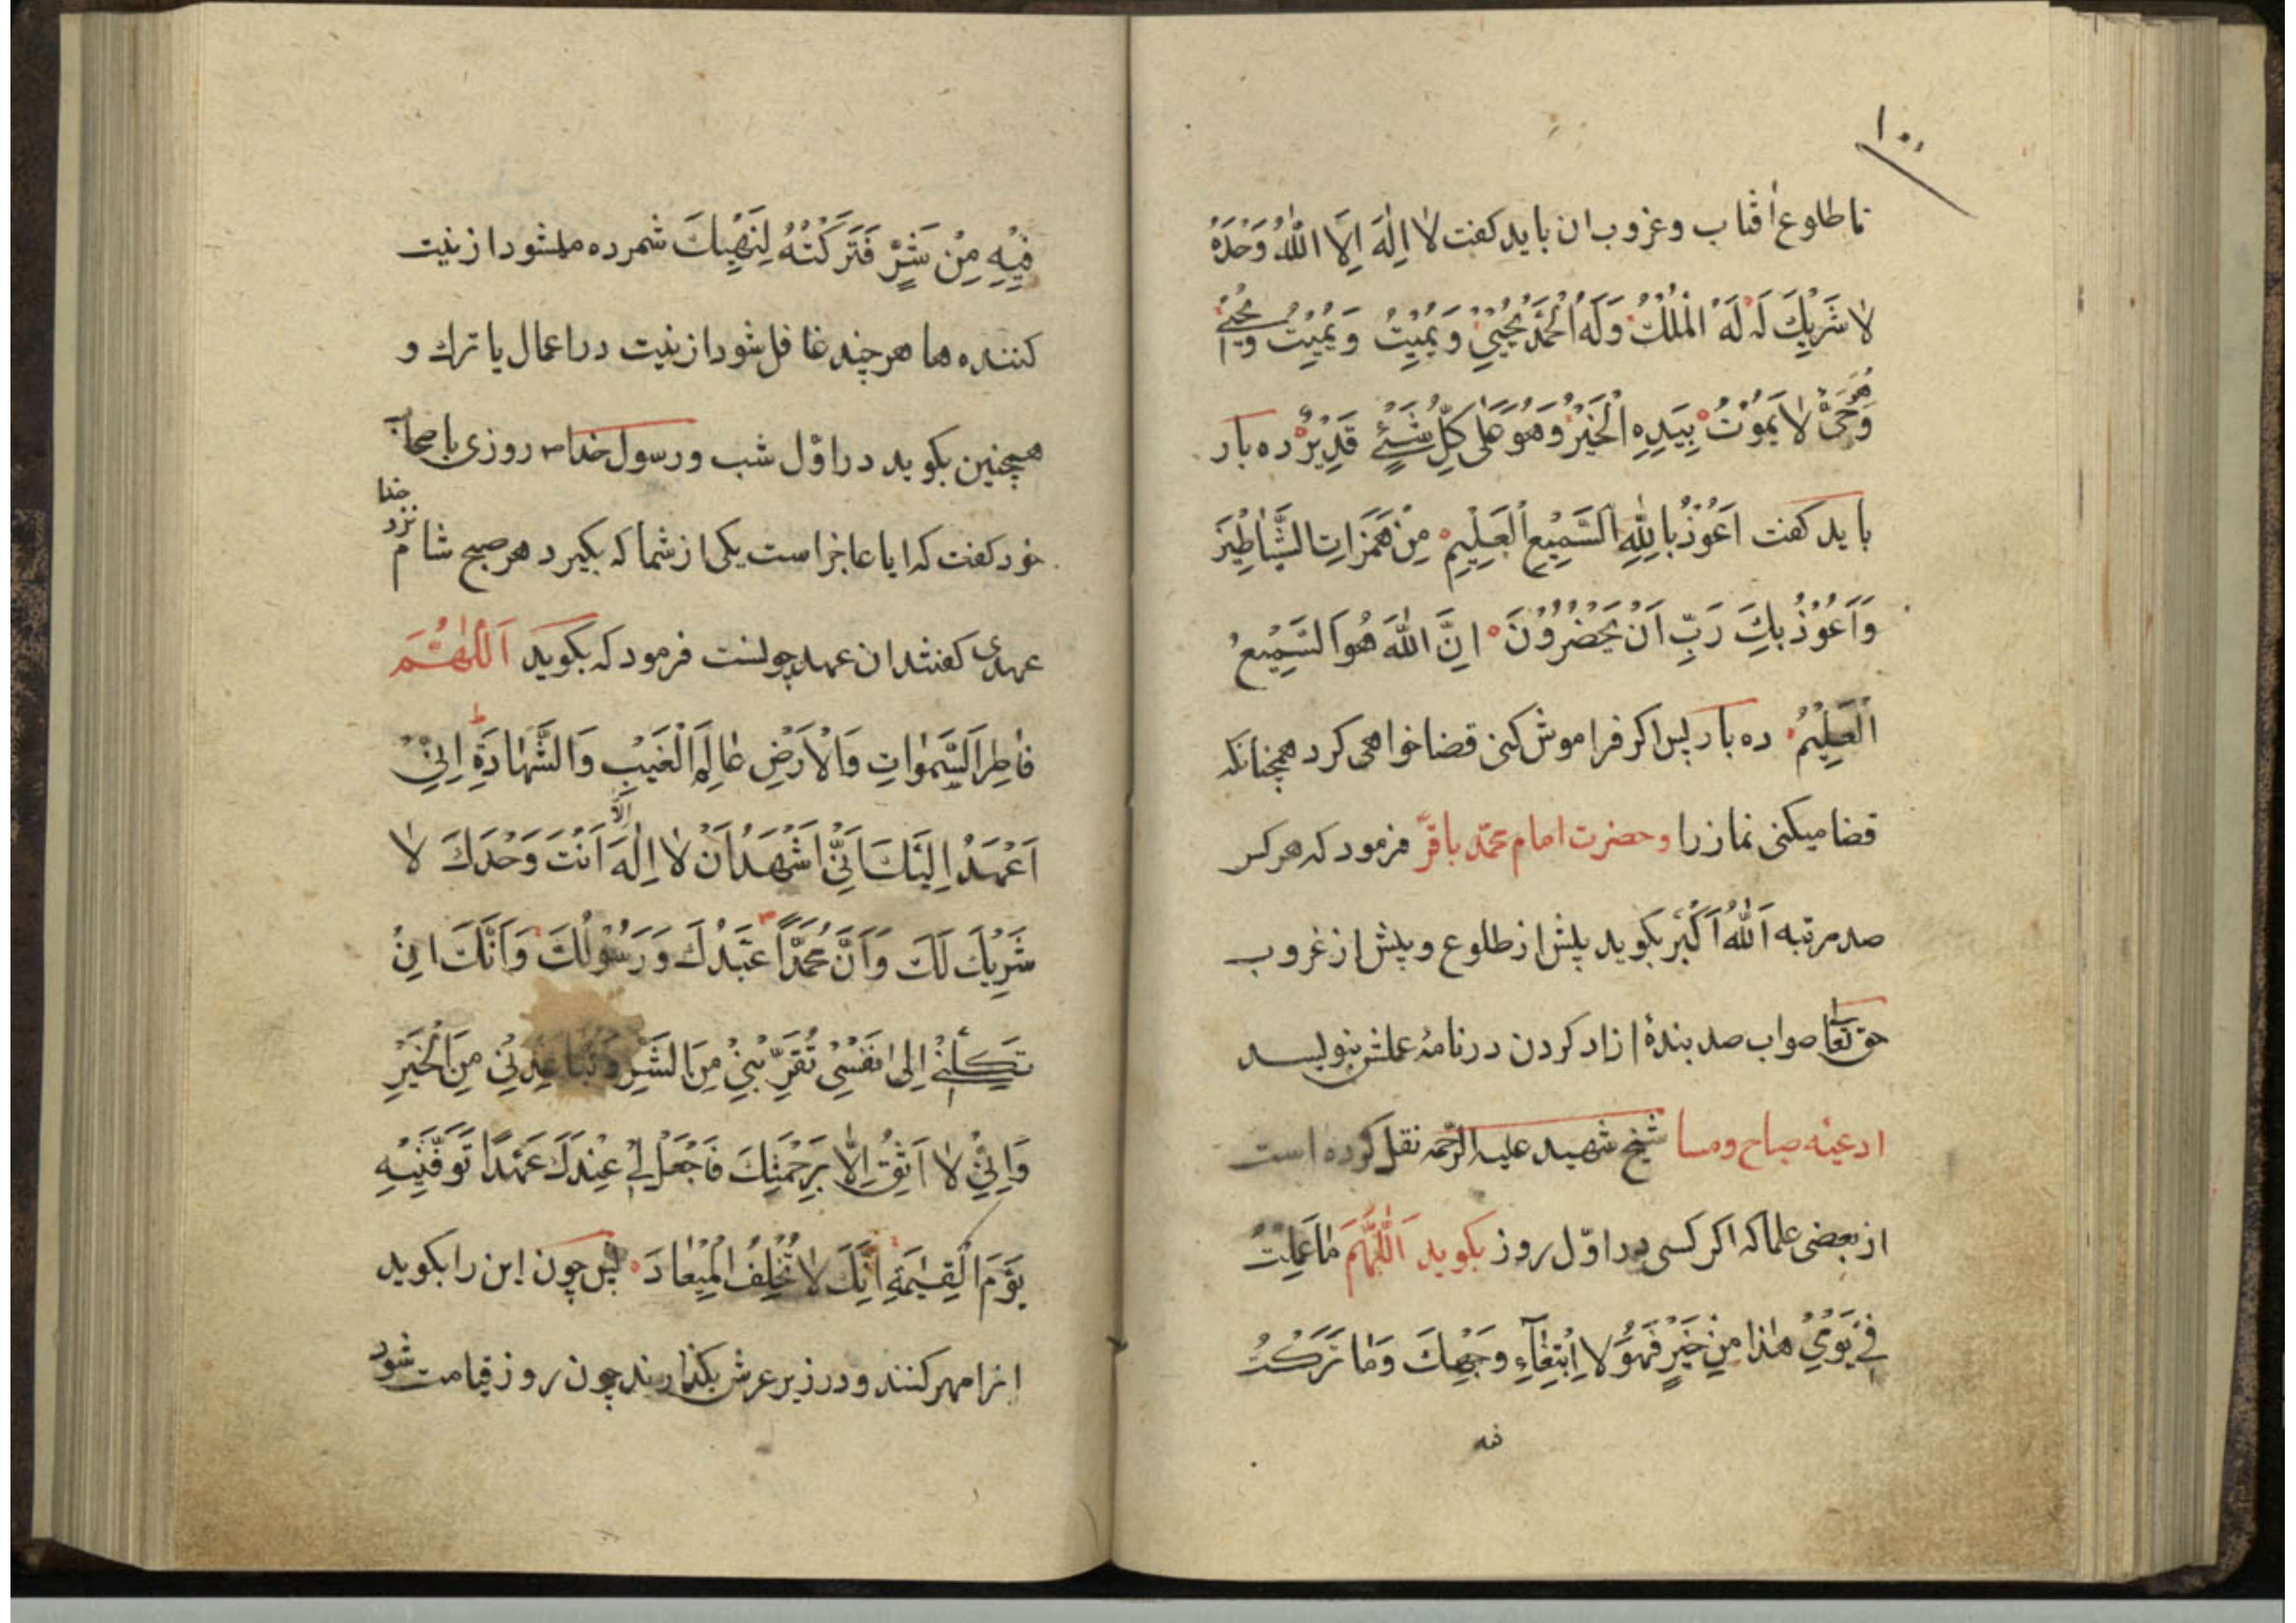 ۱۰۰
تا طلوع اٰفتاب وغروب ان باید کفت لٰا اِلٰهَ اِلَّا اللّٰهُ وَحْدَهُ
لٰا شَرِیْكَ لَهُ لَهُ الْمُلْكُ وَلَهُ الْحَمْدُ یُحْیِیْ وَیُمِیْتُ وَیُمِیْتُ وَیُحْیِیْ
وَهُوَ حَیٌّ لٰا یَمُوْتُ بِیَدِهِ الْخَیْرُ وَهُوَ عَلٰی كُلِّ شَیْءٍ قَدِیْرٌ ده بار
باید کفت اَعُوْذُ بِاللّٰهِ السَّمِیْعِ الْعَلِیْمِ مِنْ هَمَزَاتِ الشَّیٰاطِیْنَ
وَاَعُوْذُ بِكَ رَبِّ اَنْ یَحْضُرُوْنَ اِنَّ اللّٰهَ هُوَ السَّمِیْعُ
الْعَلِیْمُ ده بار پس اکر فراموش کنی قضا خواهی کرد همچنانکه
قضا میکنی نماز را وحضرت امام محمّد باقرؑ فرمود که هر کس
صد مرتبه اَللّٰهُ اَکْبَرُ بکوید پیش از طلوع وپیش از غروب
حق تعالی صواب صد بندهٔ ازاد کردن در نامهٔ عملش بنویسد
ادعیّه صباح ومسا شیخ شهید علیه الرّحمه نقل کرده است
از بعضی علما که اکر کسی در اوّل روز بکوید اَللّٰهُمَّ مٰا عَمِلْتُ
فِیْ یَوْمِیْ هٰذا مِنْ خَیْرٍ فَهُوَ لِاِبْتِغٰآءِ وَجْهِكَ وَمٰا تَرَكْتُ
فیه
فِیْهِ مِنْ شَرٍّ فَتَرَكْتُهُ لِنَهْیِكَ شمرده میشود از نیت
کننده ها هر چند غافل شود از نیت در اعمال یا ترك و
همچنین بکوید در اوّل شب ورسول خدا ص روزی باصحاب
خود کفت که ایا عاجز است یکی از شما که بکیرد هر صبح شام نزد خدا
عهدی کفتند ان عهد چونست فرمود که بکوید اَللّٰهُمَّ
فٰاطِرَ السَّمٰوٰاتِ وَالْاَرْضِ عٰالِمَ الْغَیْبِ وَالشَّهٰادَةِ اِنِّیْ
اَعْهَدُ اِلَیْكَ اَنِّیْ اَشْهَدُ اَنْ لٰا اِلٰهَ اِلَّا اَنْتَ وَحْدَكَ لٰا
شَرِیْكَ لَكَ وَاَنَّ مُحَمَّداً عَبْدُكَ وَرَسُوْلُكَ وَاَنَّكَ اِنْ
تَكِلْنِیْ اِلٰی نَفْسِیْ تُقَرِّبْنِیْ مِنَ الشَّرِّ وَتُبٰاعِدْنِیْ مِنَ الْخَیْرِ
وَاِنِّیْ لٰا اَثِقُ اِلّٰا بِرَحْمَتِكَ فَاجْعَلْ لِیْ عِنْدَكَ عَهْدًا تُوَفِّنِیْهِ
یَوْمَ الْقِیٰمَةِ اِنَّكَ لٰا تُخْلِفُ الْمِیْعٰادَ پس چون این را بکوید
انرا مهر کنند ودر زیر عرش بکذارند چون روز قیامت شود